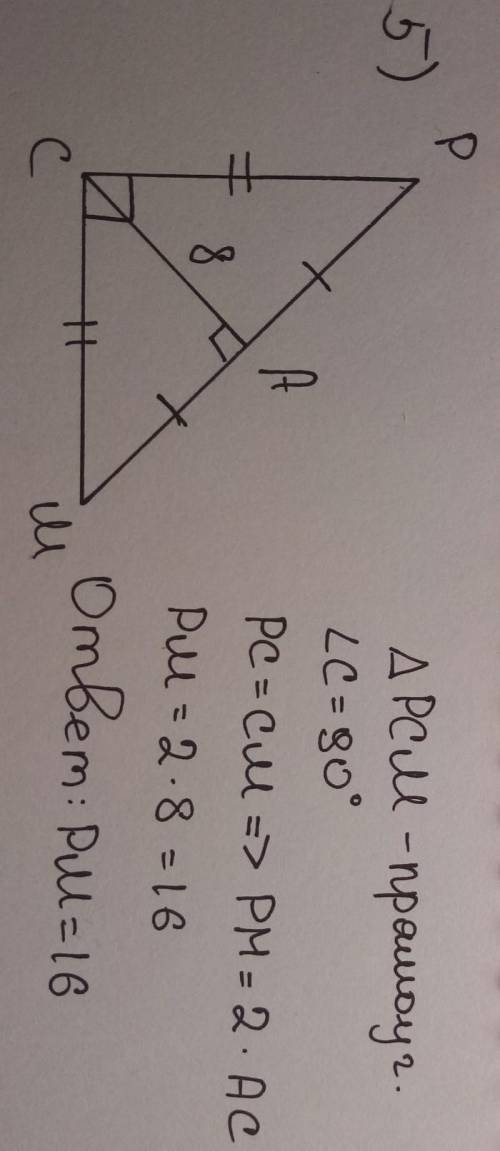 5)
P
C
8
A
M
△PCM - прямоуг.
∠C = 90°
PC = CM => PM = 2 · AC
PM = 2 · 8 = 16
Ответ: PM = 16